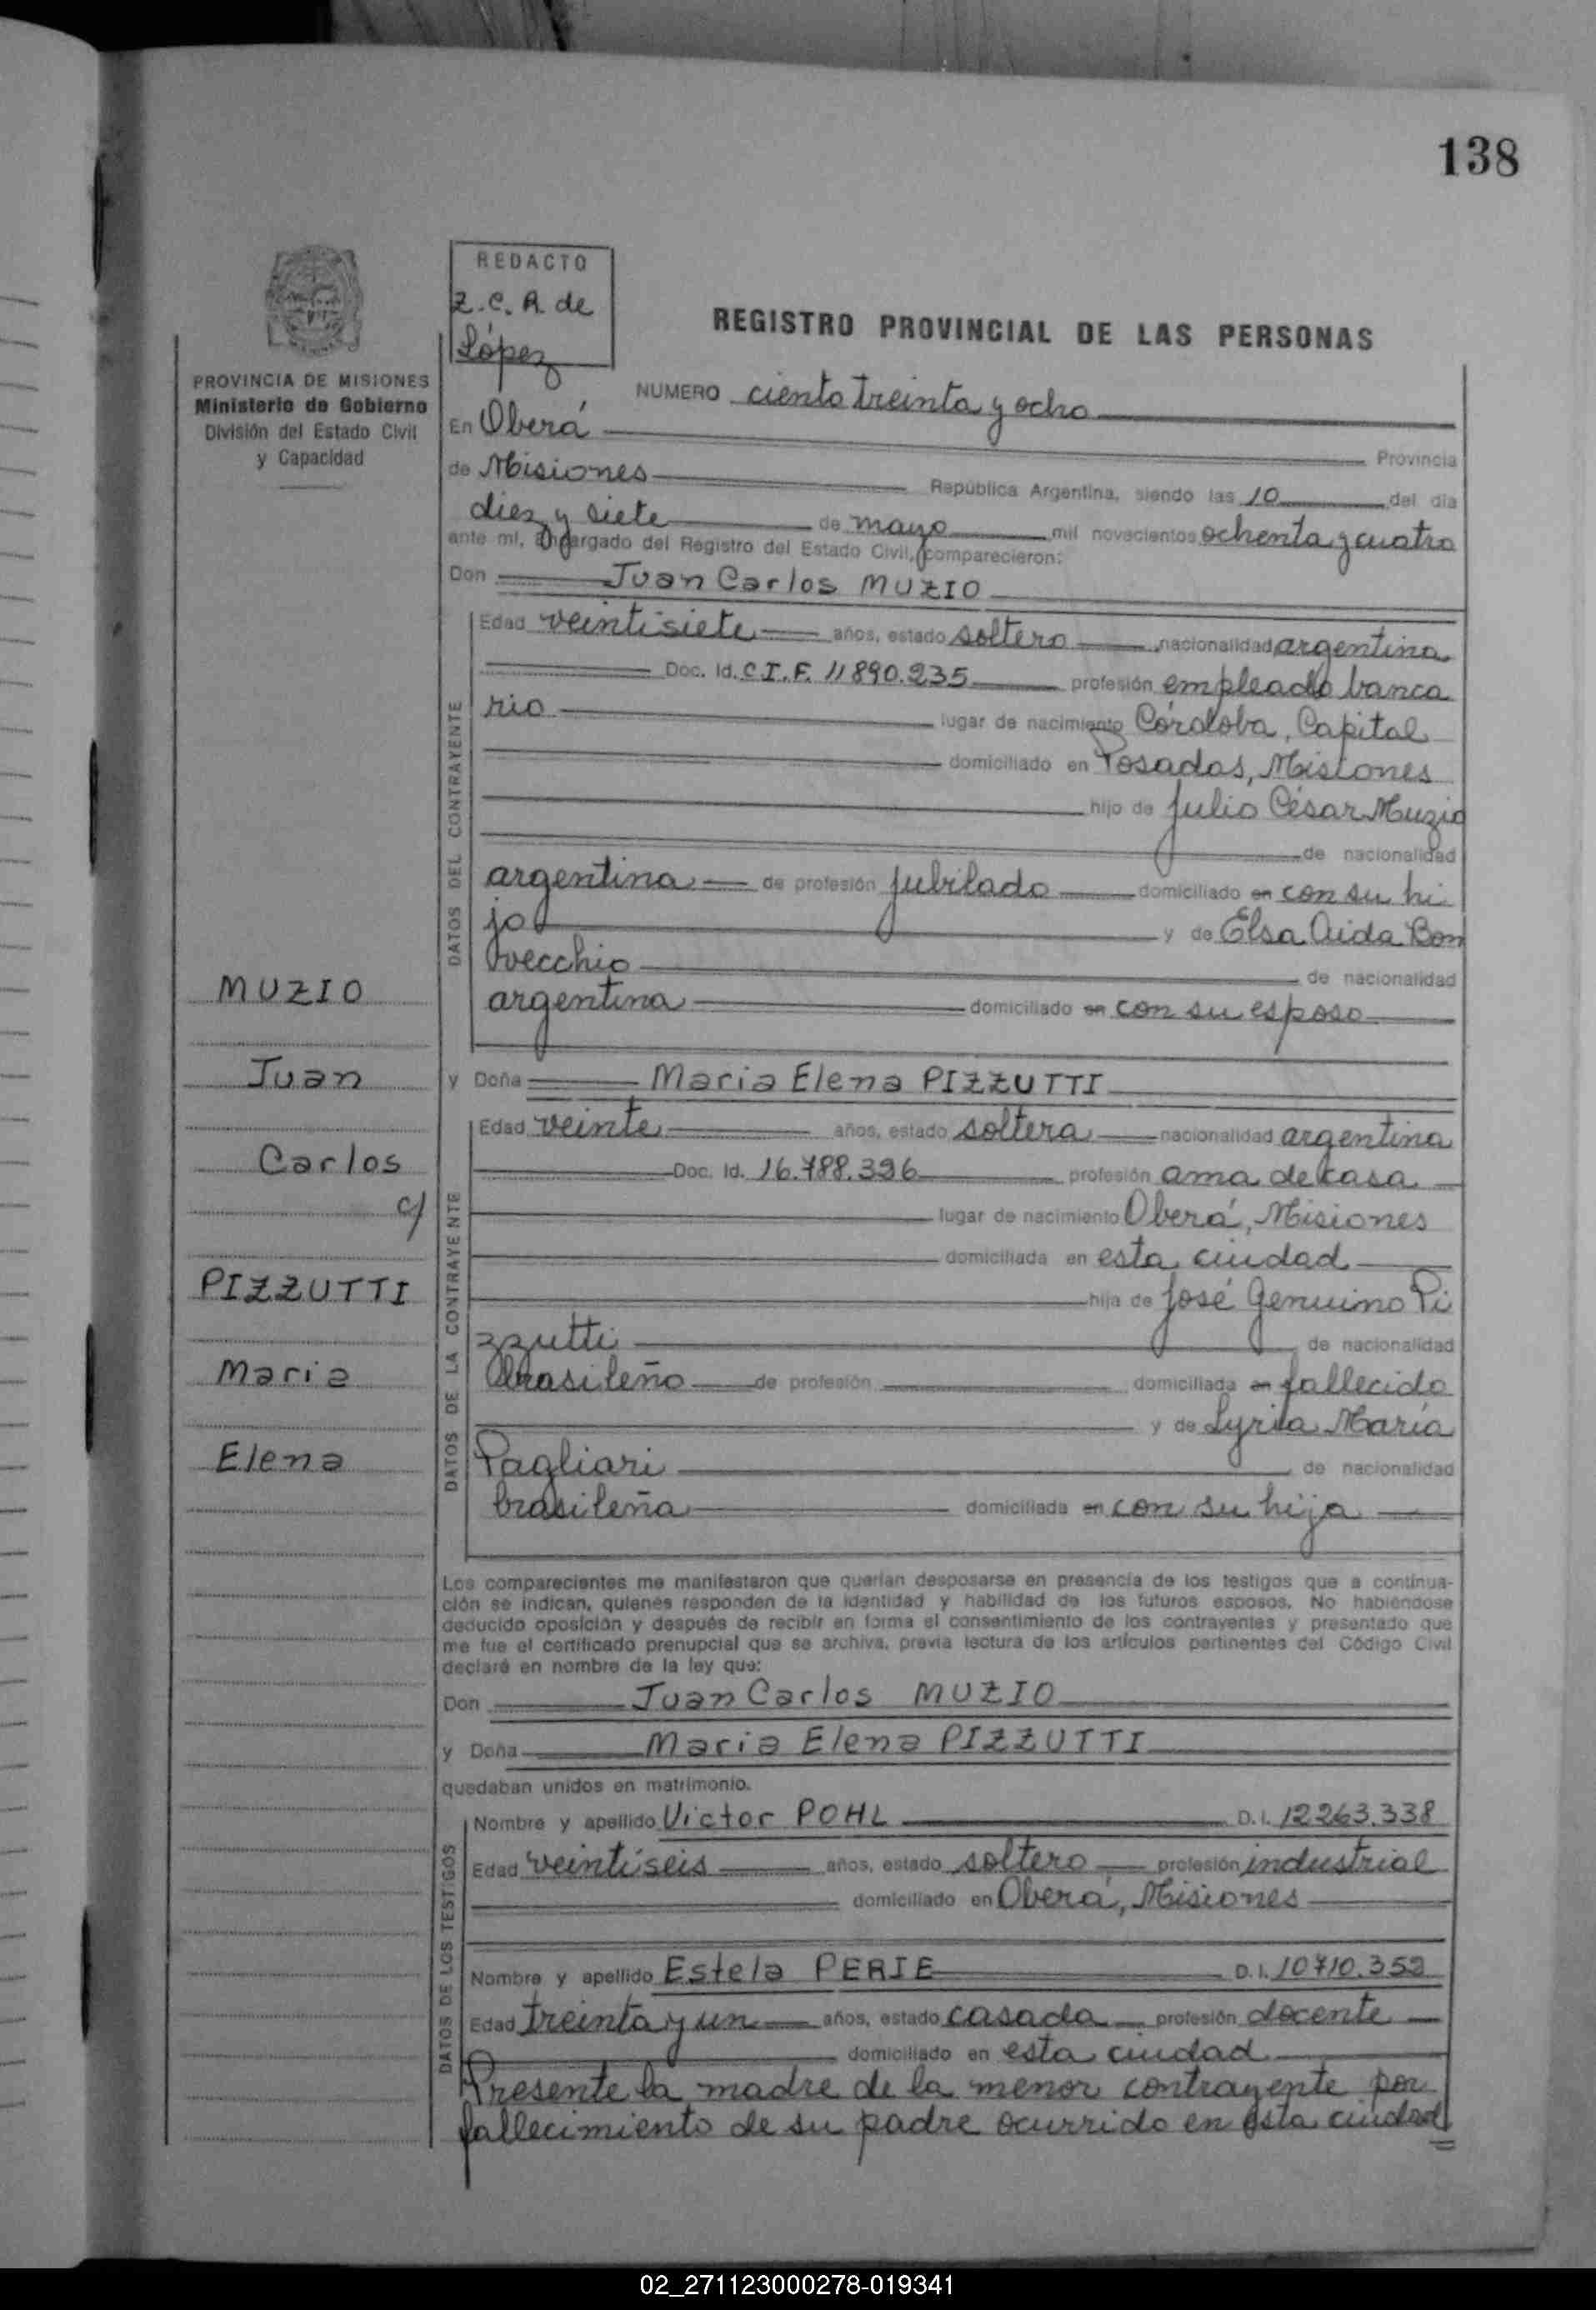 138
REDACTO
Z.C.A. de
López
REGISTRO PROVINCIAL DE LAS PERSONAS
PROVINCIA DE MISIONES
Ministerio de Gobierno
División del Estado Civil
y Capacidad
NUMERO ciento treinta y ocho
En Oberá Provincia
de Misiones República Argentina, siendo las 10 del día
diez y siete de mayo mil novecientos ochenta y cuatro
ante mí, Encargado del Registro del Estado Civil, comparecieron:
Don Juan Carlos MUZIO
DATOS DEL CONTRAYENTE
Edad veintisiete años, estado soltero nacionalidad argentina
Doc. Id. C.I.F. 11890.235 profesión empleado banca
rio lugar de nacimiento Córdoba, Capital
domiciliado en Posadas, Misiones
hijo de Julio César Muzio
de nacionalidad
argentina de profesión jubilado domiciliado en con su hi
jo y de Elsa Aida Bon
vecchio de nacionalidad
argentina domiciliado en con su esposo
y Doña Maria Elena PIZZUTTI
DATOS DE LA CONTRAYENTE
Edad veinte años, estado soltera nacionalidad argentina
Doc. Id. 16.788.396 profesión ama de casa
lugar de nacimiento Oberá, Misiones
domiciliada en esta ciudad
hija de José Genuino Pi
zzutti de nacionalidad
brasileño de profesión domiciliada en fallecido
y de Lyria María
Pagliari de nacionalidad
brasileña domiciliada en con su hija
MUZIO
Juan
Carlos
c/
PIZZUTTI
Maria
Elena
Los comparecientes me manifestaron que querían desposarse en presencia de los testigos que a continua-
ción se indican, quienes responden de la identidad y habilidad de los futuros esposos. No habiéndose
deducido oposición y después de recibir en forma el consentimiento de los contrayentes y presentado que
me fue el certificado prenupcial que se archiva, previa lectura de los artículos pertinentes del Código Civil
declaré en nombre de la ley que:
Don Juan Carlos MUZIO
y Doña Maria Elena PIZZUTTI
quedaban unidos en matrimonio.
DATOS DE LOS TESTIGOS
Nombre y apellido Victor POHL D.I. 12263.338
Edad veintiseis años, estado soltero profesión industrial
domiciliado en Oberá, Misiones
Nombre y apellido Estela PERIE D.I. 10710.352
Edad treinta y un años, estado casada profesión docente
domiciliado en esta ciudad
Presente la madre de la menor contrayente por
fallecimiento de su padre ocurrido en esta ciudad
02_271123000278-019341